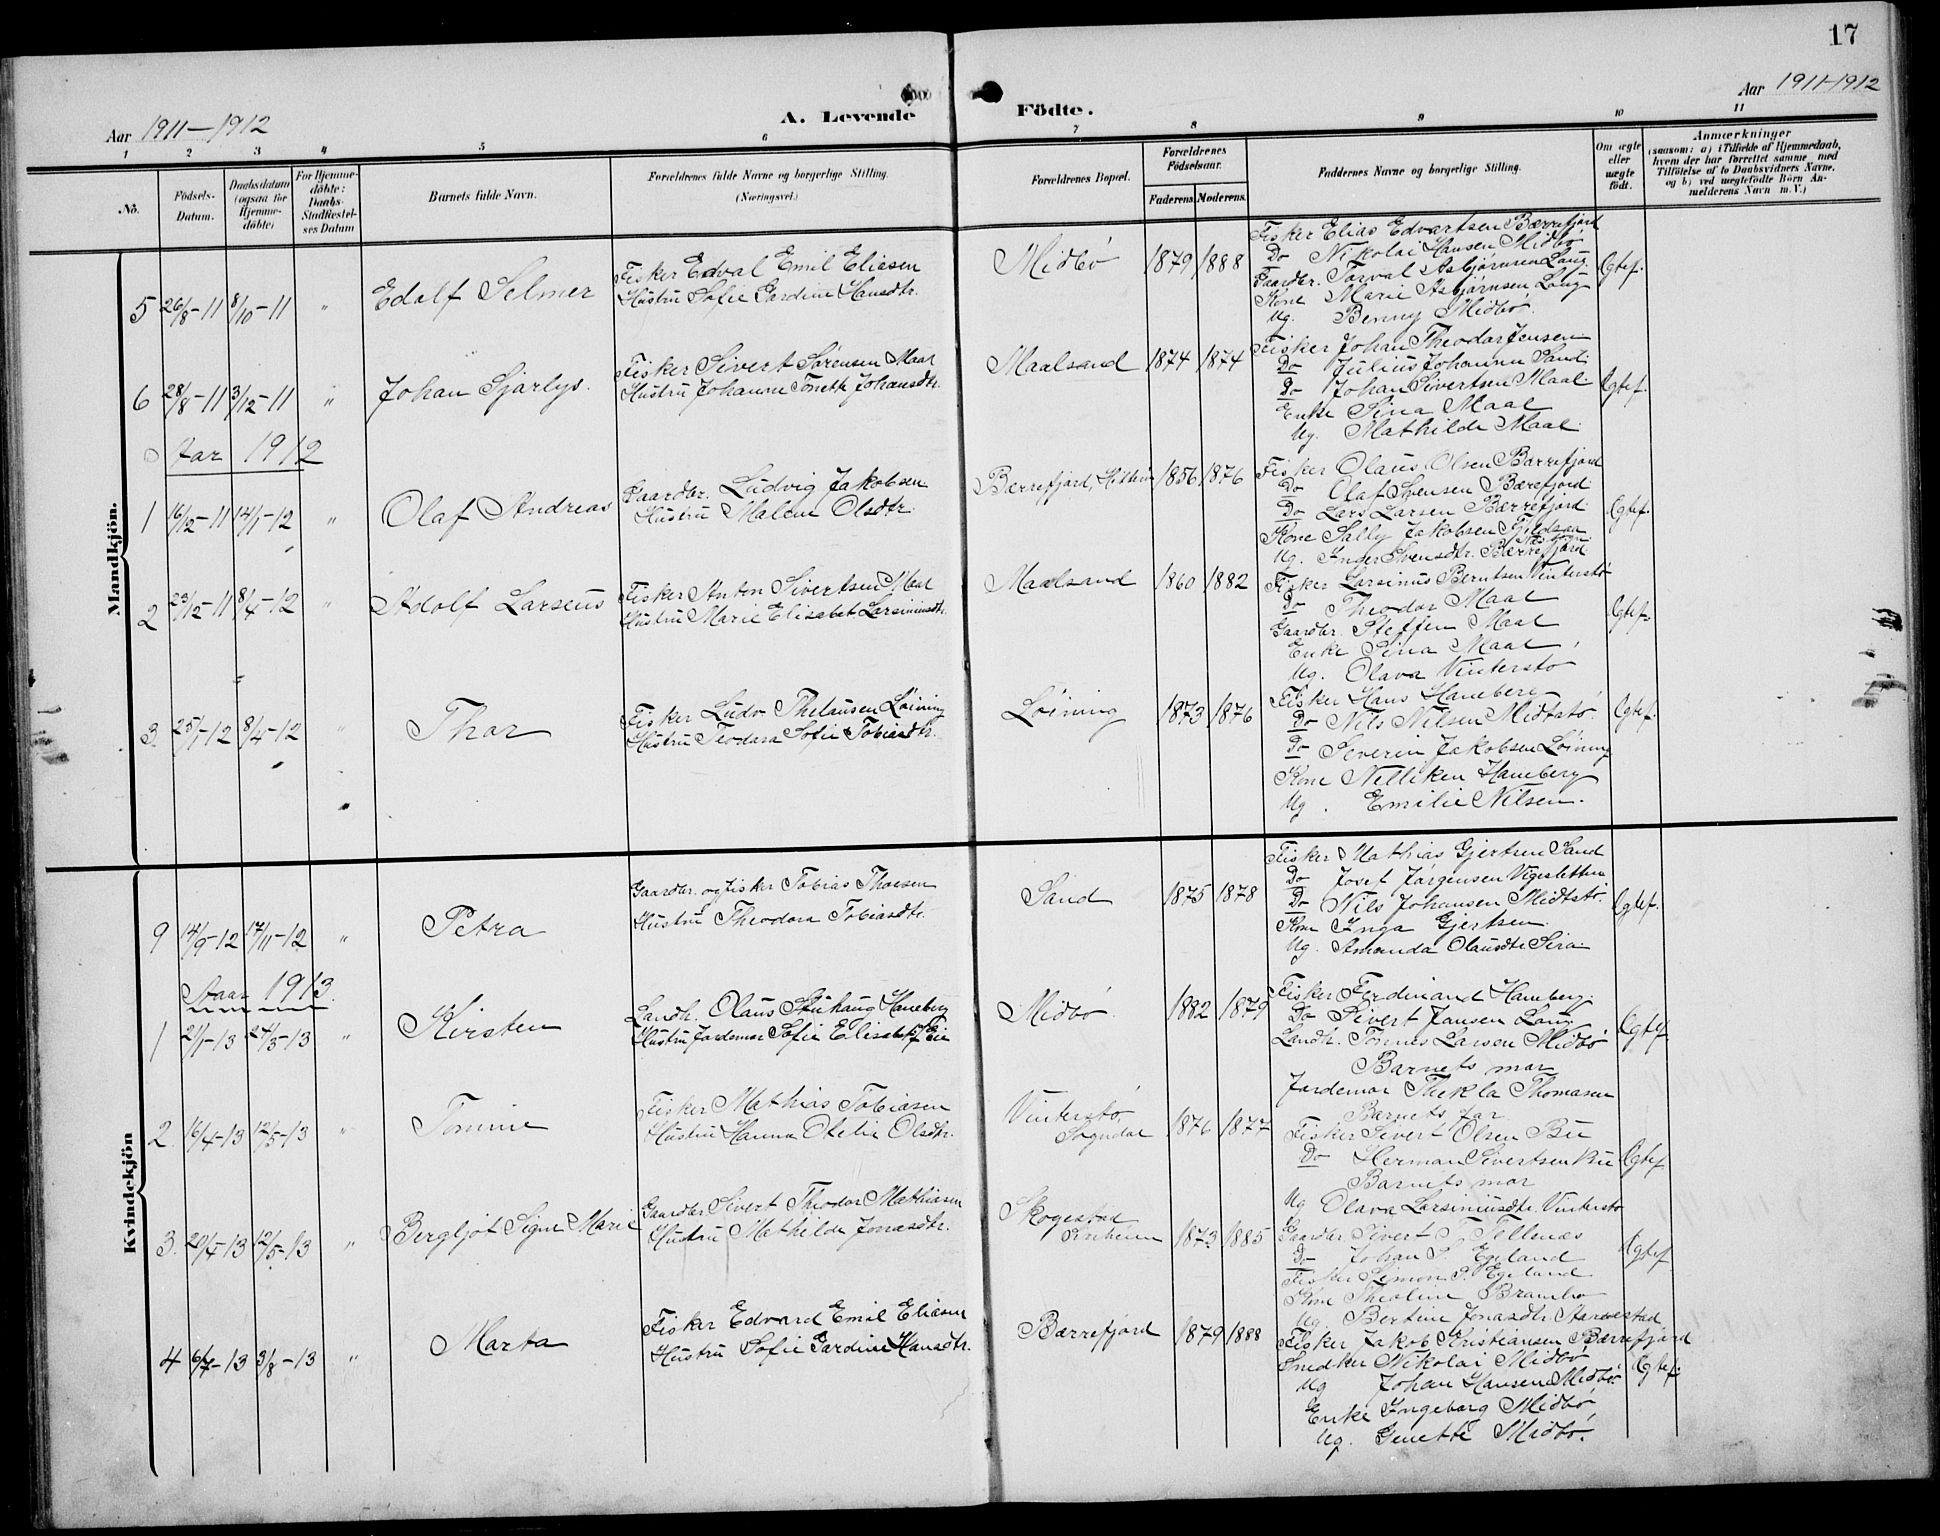 17
Aar 1911–1912
A. Levende Födte.
Aar 1911–1912
1 2 3 4 5 6 7 8 9 10 11
No.
Födsels-Datum.
Daabsdatum (ogsaa for Hjemme-döbte)
For Hjemme-döbte: Daabs-Stadfæstel-ses Datum
Barnets fulde Navn.
Forældrenes fulde Navne og borgerlige Stilling. (Næringsvei.)
Forældrenes Bopæl.
Forældrenes Födselsaar.
Faderens Moderens.
Faddernes Navne og borgerlige Stilling.
Om ægte eller uægte födt.
Anmærkninger
(saasom: a) i Tilfælde af Hjemmedaab,
hvem der har forrettet samme med
Tilföielse af to Daabsvidners Navne,
og b) ved uægtefödte Börn An-
melderens Navn m. V.)
Mandkjön.
5 26/8-11 8/10-11 " Edolf Selmer
Fisker Edval Emil Eliesen
Hustru Sofie Gardine Hansdtr.
Midbö 1879 1888
Fisker Elias Edvartsen Bærrefjord
Do Nikolai Hansen Midbö
Gaardbr. Torval Asbjörnsen Laug
Kone Marie Asbjörnsen Laug
Ug. Benny Midbö
Ægtef.
6 28/8-11 3/12-11 " Johan Sjarlys.
Fisker Sivert Sörensen Maal
Hustru Johanne Tonette Johansdtr.
Maalsand 1874 1874
Fisker Johan Theodor Jensen
Do Julius Johannesen Sand
Do Johan Sivertsen Maal
Enke Sina Maal
Ug. Mathilde Maal
Ægtef.
Aar 1912
1 16/12-11 14/1-12 " Olaf Andreas
Gaardbr. Ludvig Jakobsen
Hustru Malene Olsdtr.
Bærrefjord, Hitterö 1856 1876
Fisker Olaus Olsen Barrefjord
Do Olaf Svensen Bærefjord
Do Lars Larsen Bærrefjord
Kone Sally Jakobsen
Ug. Inger Svensdtr. Bærrefjord
Ægtef.
2 23/12-11 8/4-12 " Adolf Larseus
Fisker Anton Sivertsen Maal
Hustru Marie Elisabet Larsiniusdtr.
Maalsand 1860 1882
Fisker Larsinus Berntsen Vinterstö
Do Theodor Maal
Gaardbr. Steffen Maal
Enke Sina Maal
Ug. Olava Vinterstö
Ægtef.
3. 25/1-12 8/4-12 " Thor
Fisker Ludv Thelausen Löining
Hustru Teodora Sofie Tobiasdtr.
Löining 1873 1876
Fisker Hans Haneberg
Do Nils Nilsen Midtstö
Do Severin Jakobsen Löining
Kone Nilliken Haneberg
Ug. Emilie Nilsen.
Ægtef.
Kvindekjön
9 14/9-12 17/11-12 " Petra
Gaardbr. og fisker Tobias Thoesen
Hustru Theodora Tobiasdtr.
Sand 1875 1878
Fisker Mathias Gjertsen Sand
Do Josef Jörgensen Vigesletten
Do Nils Johansen Midtstö.
Kone Inga Gjertsen
Ug. Amanda Olausdtr Sira
Ægtef.
Aaar 1913.
1 2/1-13 24/3-13 " Kirsten
Landh. Olaus Haneberg
Hustru Jordemor Sofie Elisabet
Midbö. 1882 1879
Fisker Ferdinand Haneberg.
Do Sivert Jansen Laug
Landh. Tönnes Larsen Midbö
Barnets mor
Jordemor Thekla Thomasen
Ægtef
2. 16/4-13 12/5-13 " Tomine
Fisker Mathias Tobiasen
Hustru Hanna Otelie Olsdtr.
Vinterstö, Sogndal 1876 1877
Barnets far
Fisker Sivert Olsen Bu
Do Herman Sivertsen Bu
Barnets mor
Ug Olava Larsiniusdtr. Vinterstö
Ægtef
3. 20/4-13 12/5-13 " Bergljot Signe Marie
Gaardbr Sivert Theodor Mathiasen
Hustru Mathilde Jonasdtr.
Skogestad 1873 1885
Gaardbr Sivert T. Tellenæs
Do Johan S. Egeland
Fisker Simon S. Egeland
Kone Theoline Brambo
Ug. Bertine Jonasdtr
Ægtef
4 6/7-13 3/8-13 " Marta
Fisker Edvard Emil Eliesen
Hustru Sofie Gardine Hansdtr.
Bærrefjord 1879 1888
Fisker Jakob Kristiansen Bærrefjord
Snedker Nikolai Midbö
Ug Johan Hansen Midbö
Enke Ingeborg Midbö
Ug. Genette Midbö.
Ægtef.